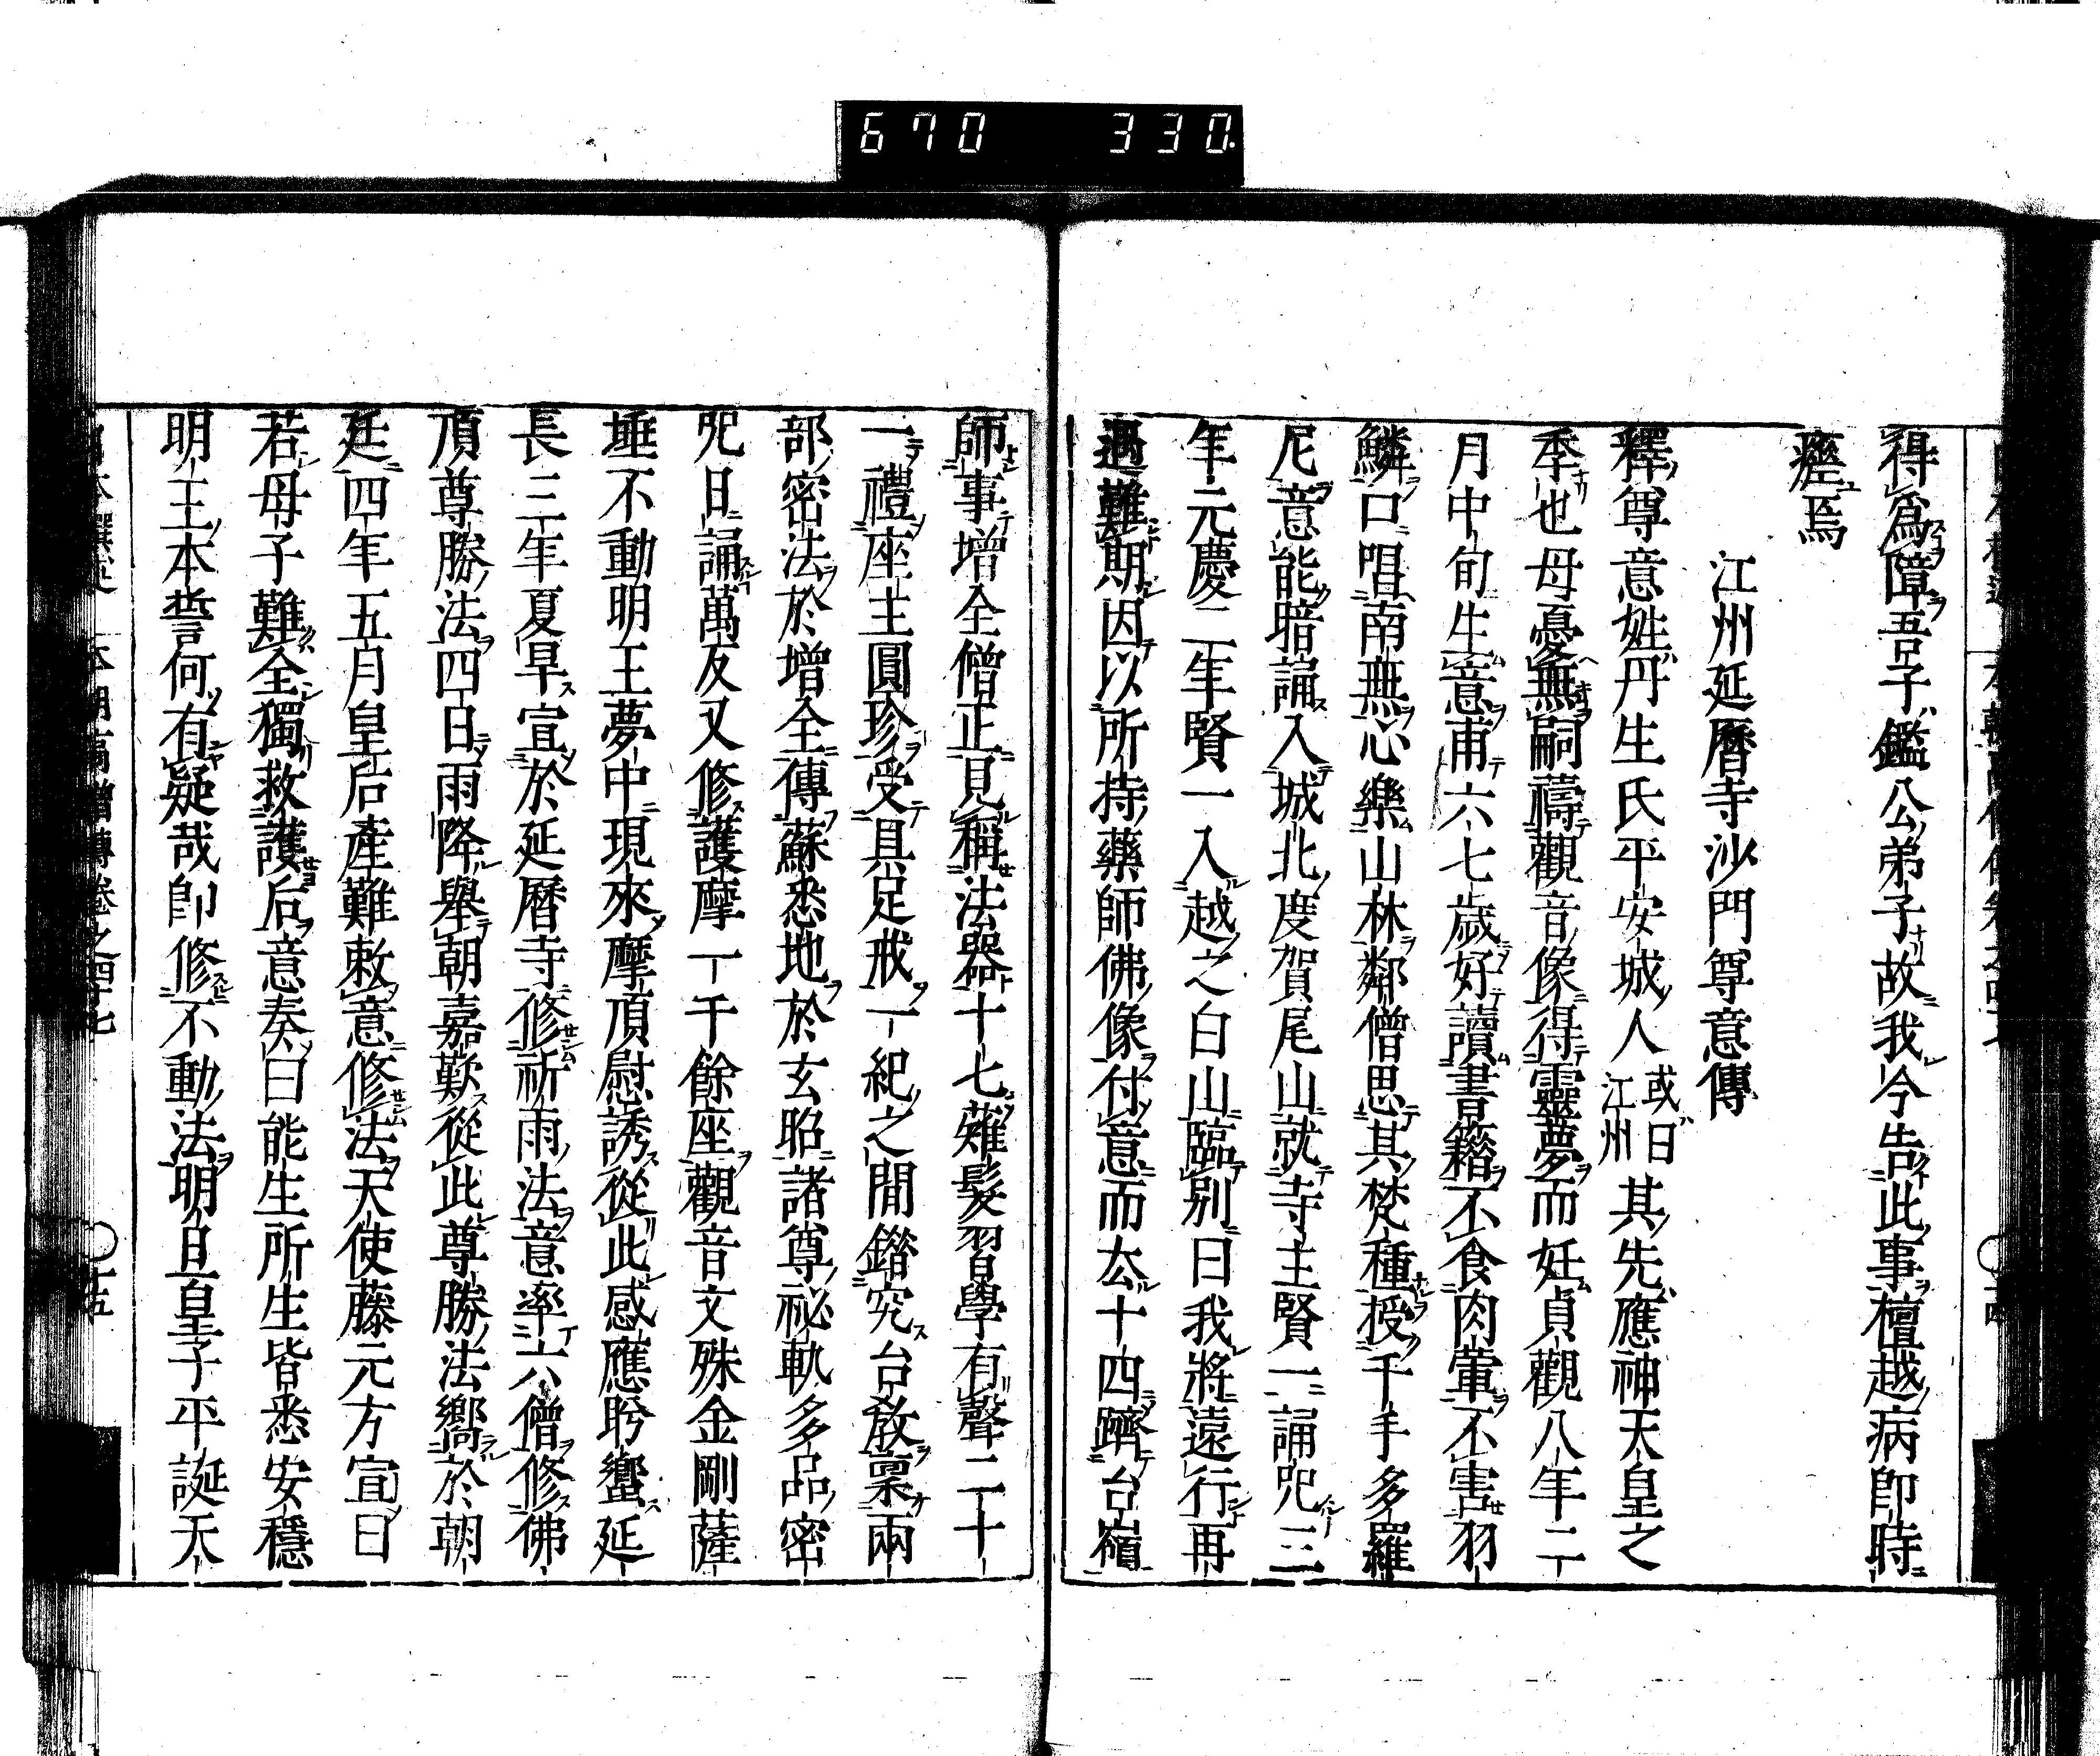 670 330
得爲障吾子鑑公弟子故我今告此事檀越病即時
瘥焉
江州延曆寺沙門尊意傳
釋尊意姓丹生氏平安城人或曰江州其先應神天皇之
季也母憂無嗣禱觀音像得靈夢而妊貞觀八年二
月中旬生意甫六七歲好讀書籍不食肉葷不害羽
鱗口唱南無心樂山林鄰僧思其梵種授千手多羅
尼意能暗誦入城北度賀尾山就寺主賢一誦咒三
年元慶二年賢一入越之白山臨別曰我將遠行再
遇難期因以所持藥師佛像付意而厺十四躋台嶺
師事增全僧正見稱法器十七薙髮習學有聲二十
一禮座主圓珍受具足戒一紀之間鑽究台敎稟兩
部密法於增全傳蘇悉地於玄昭諸尊祕軌多品密
咒日誦萬反又修護摩一千餘座觀音文殊金剛薩
埵不動明王夢中現來摩頂慰誘從此感應肹蠁延
長三年夏旱宣於延曆寺修祈雨法意率六僧修佛
頂尊勝法四日雨降舉朝嘉歎從此尊勝法嚮於朝
廷四年五月皇后產難敕意修法天使藤元方宣曰
若母子難全獨救護后意奏曰能生所生皆悉安穩
明王本誓何有疑哉即修不動法明旦皇子平誕天
本朝高僧傳卷之四十七
十五